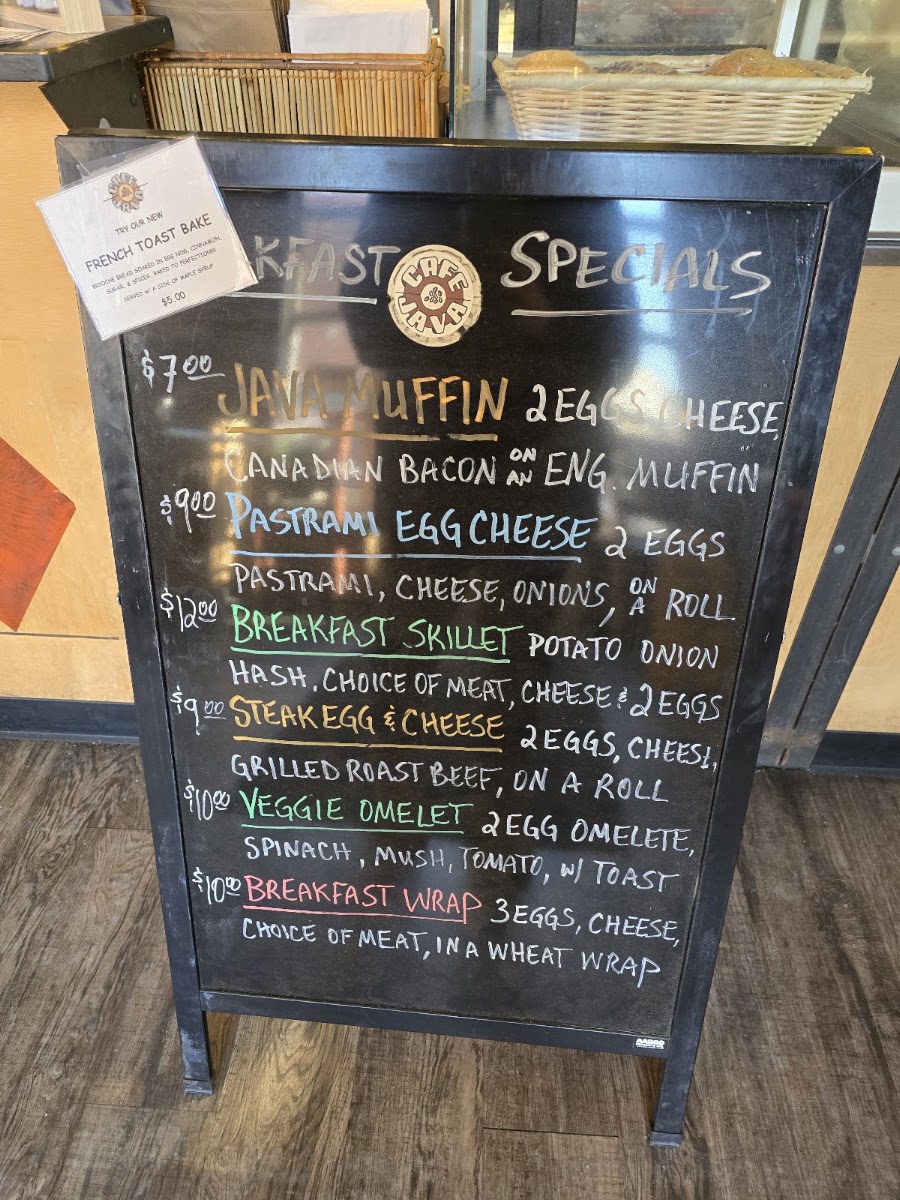 TRY OUR NEW
FRENCH TOAST BAKE
BRIOCHE BREAD SOAKED IN EGG NOG, CINNAMON,
SUGAR, & SPICES. BAKED TO PERFECTION!!
SERVED W/ A SIDE OF MAPLE SYRUP
$5.00
KFAST CAFE JAVA SPECIALS
$7.00 JAVA MUFFIN 2 EGGS, CHEESE,
CANADIAN BACON ON AN ENG. MUFFIN
$9.00 PASTRAMI EGG CHEESE 2 EGGS
PASTRAMI, CHEESE, ONIONS, ON A ROLL
$12.00 BREAKFAST SKILLET POTATO ONION
HASH, CHOICE OF MEAT, CHEESE & 2 EGGS
$9.00 STEAK EGG & CHEESE 2 EGGS, CHEESE,
GRILLED ROAST BEEF, ON A ROLL
$10.00 VEGGIE OMELET 2 EGG OMELETE,
SPINACH, MUSH, TOMATO, W/ TOAST
$10.00 BREAKFAST WRAP 3 EGGS, CHEESE,
CHOICE OF MEAT, IN A WHEAT WRAP
AARCO